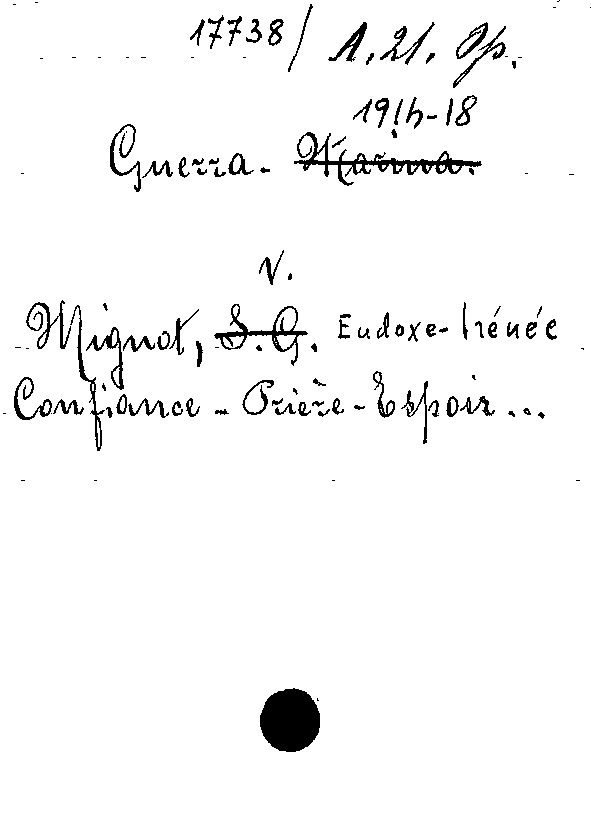 17738/ A. 21. Op.
1914-18
Guerra. Marina.
V.
Mignot, S. G. Eudoxe-Irénée
Confiance - Prière - Espoir...